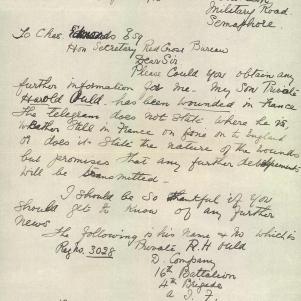 Military Road.
Semaphore.
To Chas. Edmunds Esq
Hon Secretary Red Cross Bureau
Dear Sir
Please Could you obtain any
further information for me. My Son Private
Harold Ould. has been wounded in France
The telegram does not State where he is,
wheather Still in France or gone on to England
or does it State the nature of the wounds
but promises that any further developements
will be transmitted.
I should be so thankful if you
should get to know of any further
news
The following is his name & No which is
Reg no. 3028 Private R. H Ould
D. Company
16th Battalion
4th Brigade
A. I. F.